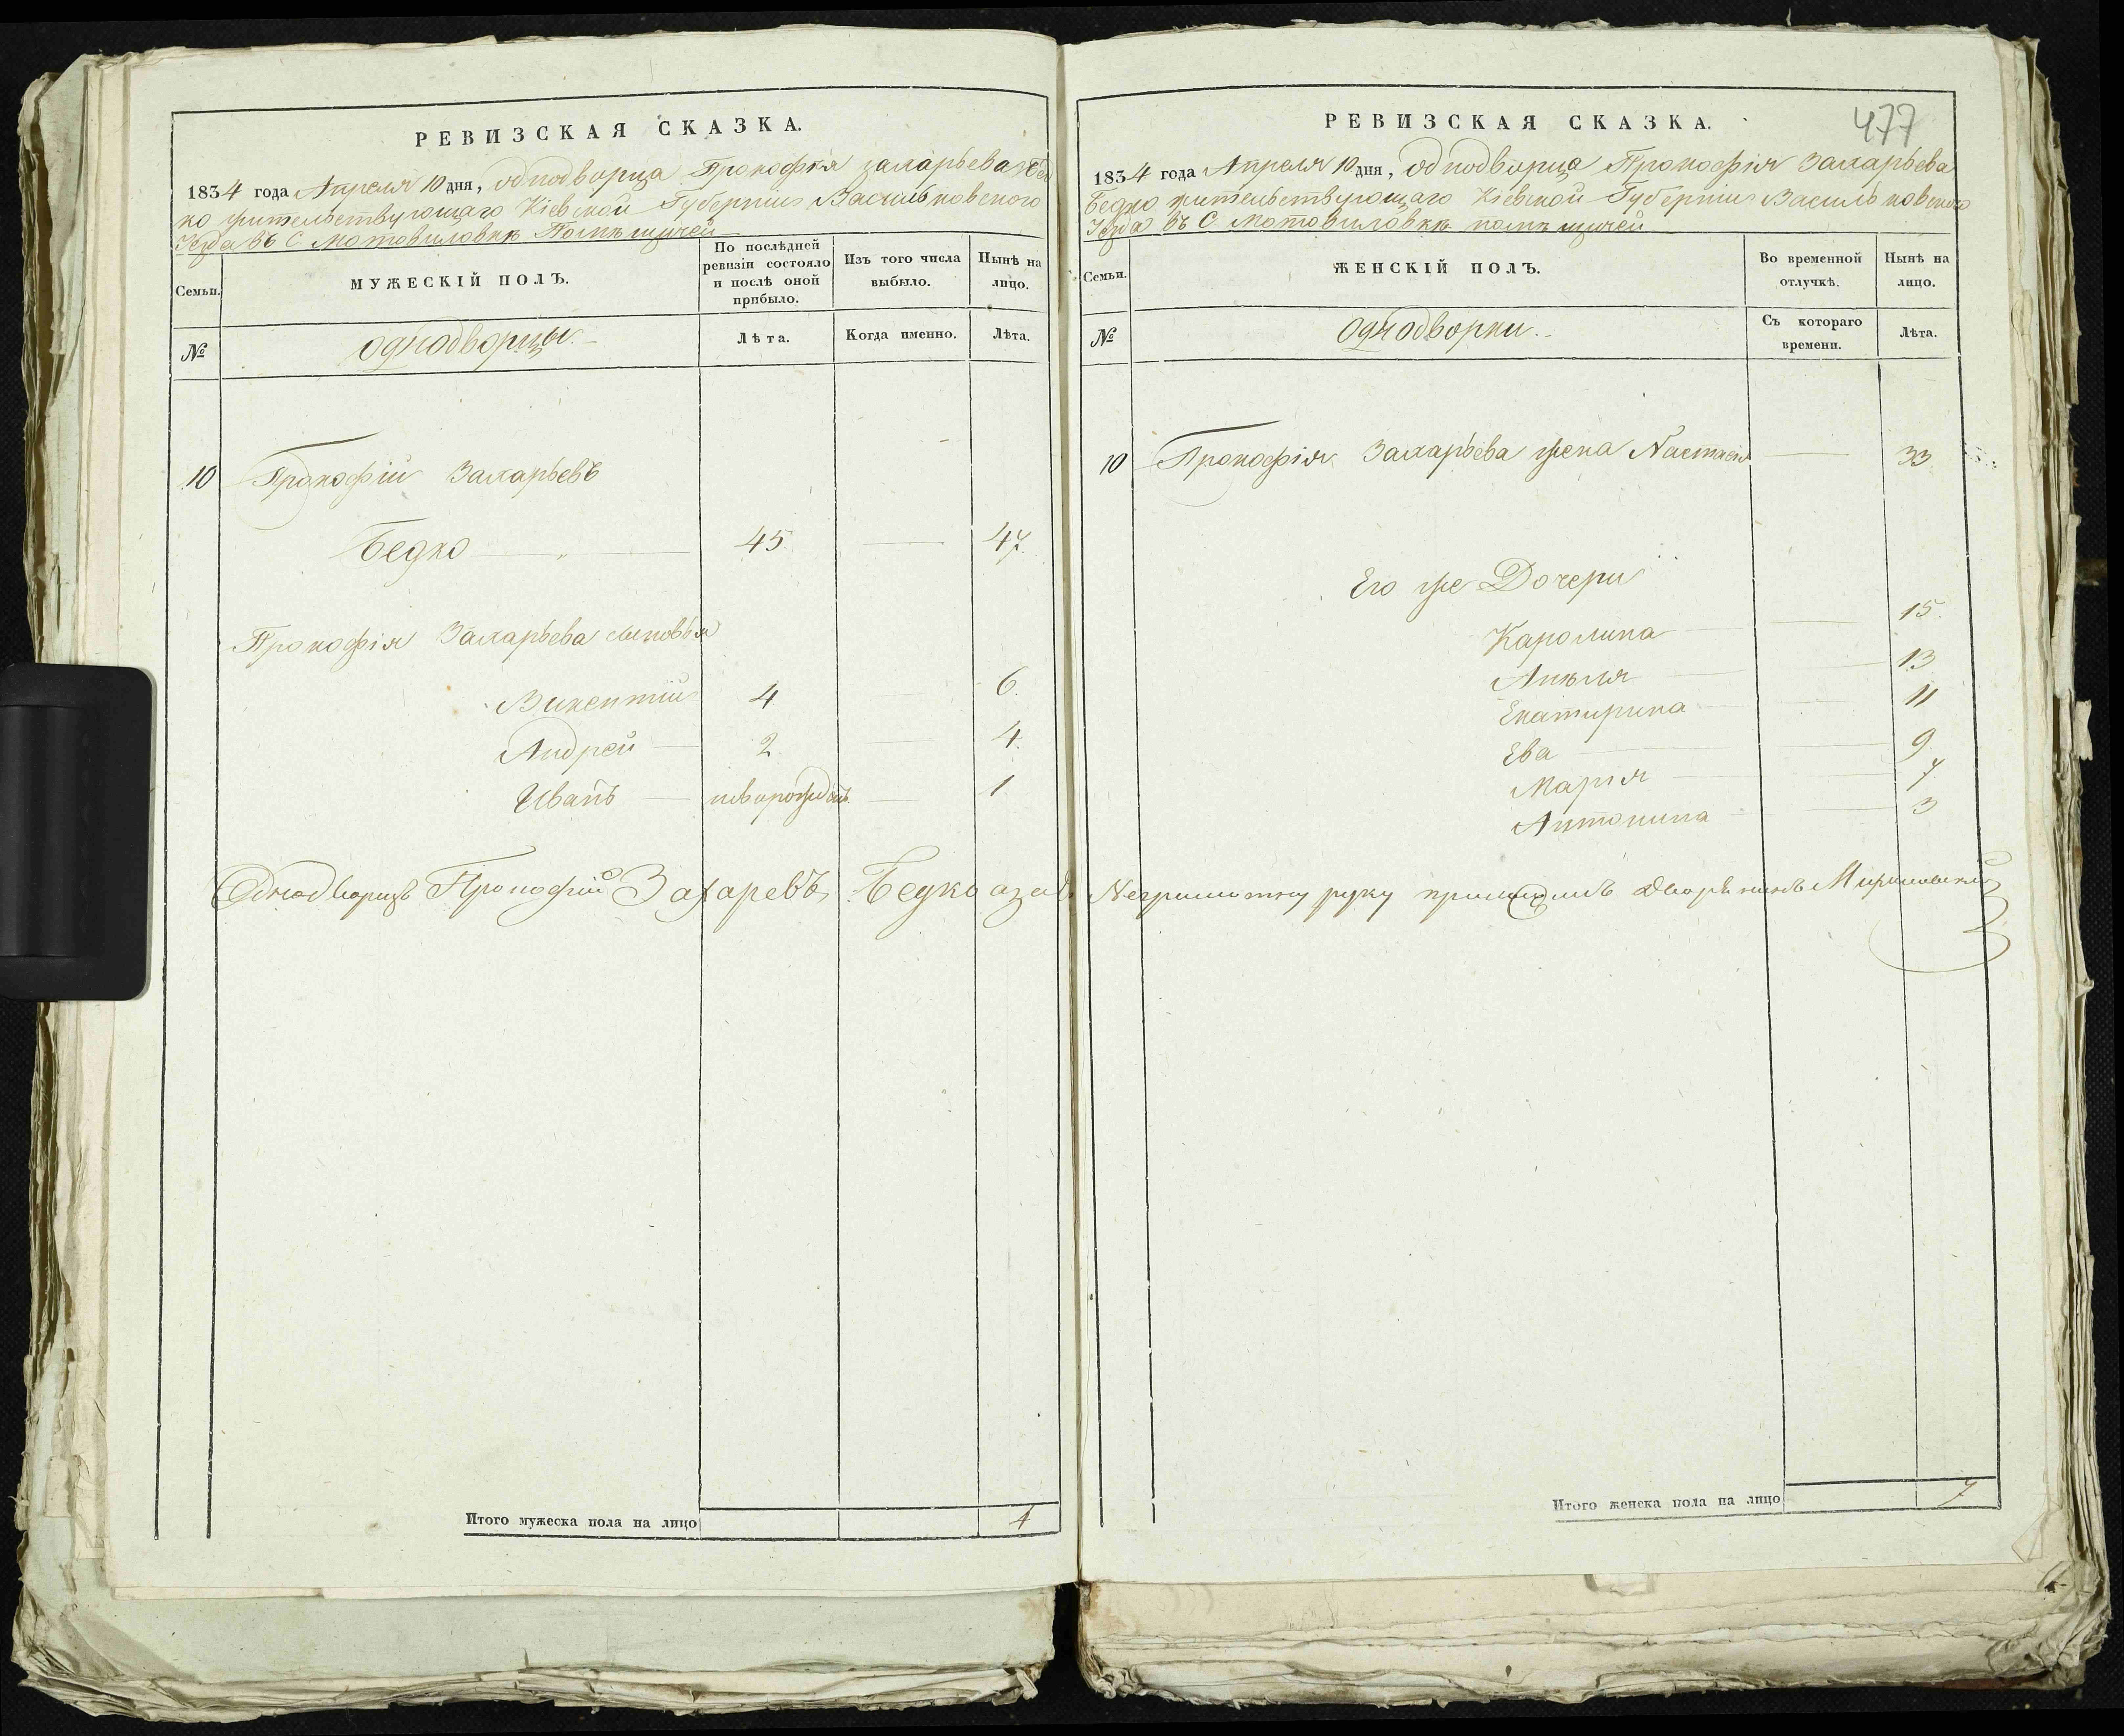 РЕВИЗСКАЯ СКАЗКА.
1834 года Апреля 10 дня, однодворца Прокофія Захарьева Бед
ко жительствующаго Кіевской Губерніи Васильковского
Уезда въ С. Мотовиловкѣ помѣщичей
Семьи.
МУЖЕСКІЙ ПОЛЪ.
По послѣдней ревизіи состояло и послѣ оной прибыло.
Изъ того числа выбыло.
Нынѣ на лицо.
№
однодворцы.
Лѣта.
Когда именно.
Лѣта.
10 Прокофій Захарьевъ
Бедко 45. 47.
Прокофія Захарьева сыновья
Викентій 4 6.
Андрей 2 4.
Иванъ новорожден. 1
Однодворецъ Прокофій Захаревъ Бедко а за его
Итого мужеска пола на лицо 4
477
РЕВИЗСКАЯ СКАЗКА.
1834 года Апреля 10 дня, однодворца Прокофія Захарьева
Бедко жительствующаго Кіевской Губерніи Васильковского
Уезда въ С. Мотовиловкѣ помѣщичей
Семьи.
ЖЕНСКІЙ ПОЛЪ.
Во временной отлучкѣ.
Нынѣ на лицо.
№
Однодворки.
Съ котораго времени.
Лѣта.
10 Прокофія Захарьева жена Настасія 33
Его же Дочери
Каролина 15.
Анѣля 13
Екатирина 11
Ева 9
Марія 7
Антонина 3
Неграмотну руку приложилъ Дворянинъ
Итого женска пола на лицо 7